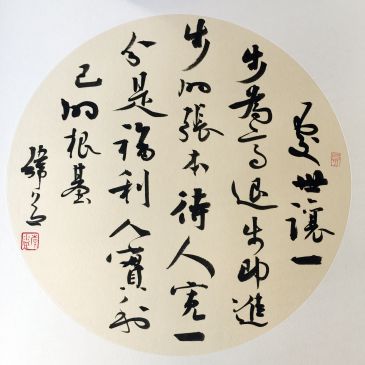 處世讓一
步為高退步即進
步的張本待人寬一
分是福利人實利
己的根基